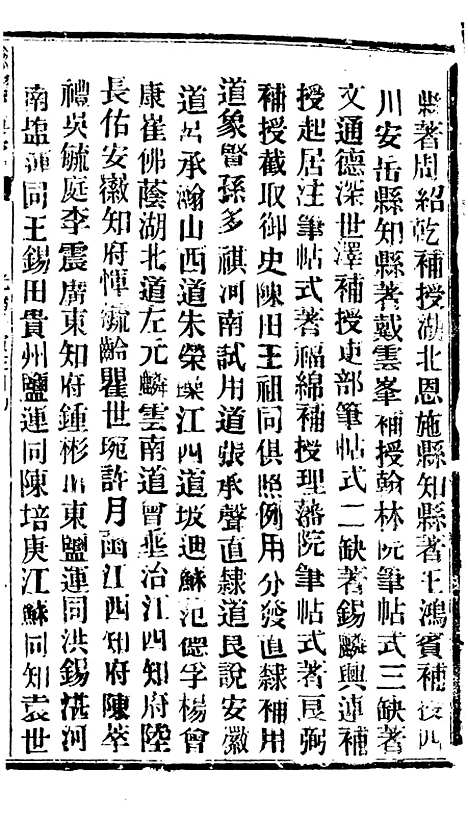 縣著周紹乾補授湖北恩施縣知縣著王鴻賓補授四
川安岳縣知縣著戴雲峯補授翰林院筆帖式三缺著
文通德深世澤補授吏部筆帖式二缺著錫麟興連補
授起居注筆帖式著福綿補授理藩院筆帖式著良弼
補授截取御史陳田王祖同俱照例用分發直隸補用
道象賢孫多祺河南試用道張承聲直隸道良說安徽
道呂承瀚山西道朱榮璪江西道坡迪蘇范德孚楊曾
康崔佛蔭湖北道左元麟雲南道曾丕治江西知府陸
長佑安徽知府惲毓齡瞿世琬許月函江西知府陳萃
禮吳毓庭李震廣東知府鍾彬山東鹽運同洪錫湛河
南鹽運同王錫田貴州鹽運同陳培庚江蘇同知袁世